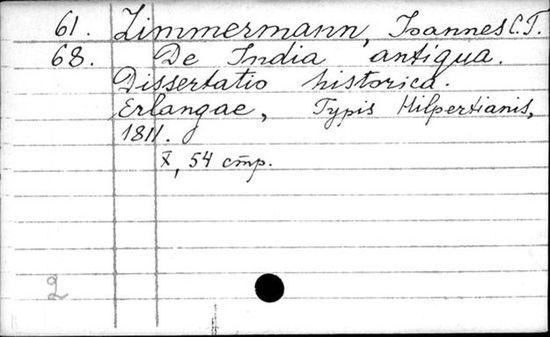 61. Zimmermann, Ioannes C. T.
68. De India antiqua.
Dissertatio historica.
Erlangae, Typis Hilpertianis,
1811.
X, 54 стр.
2